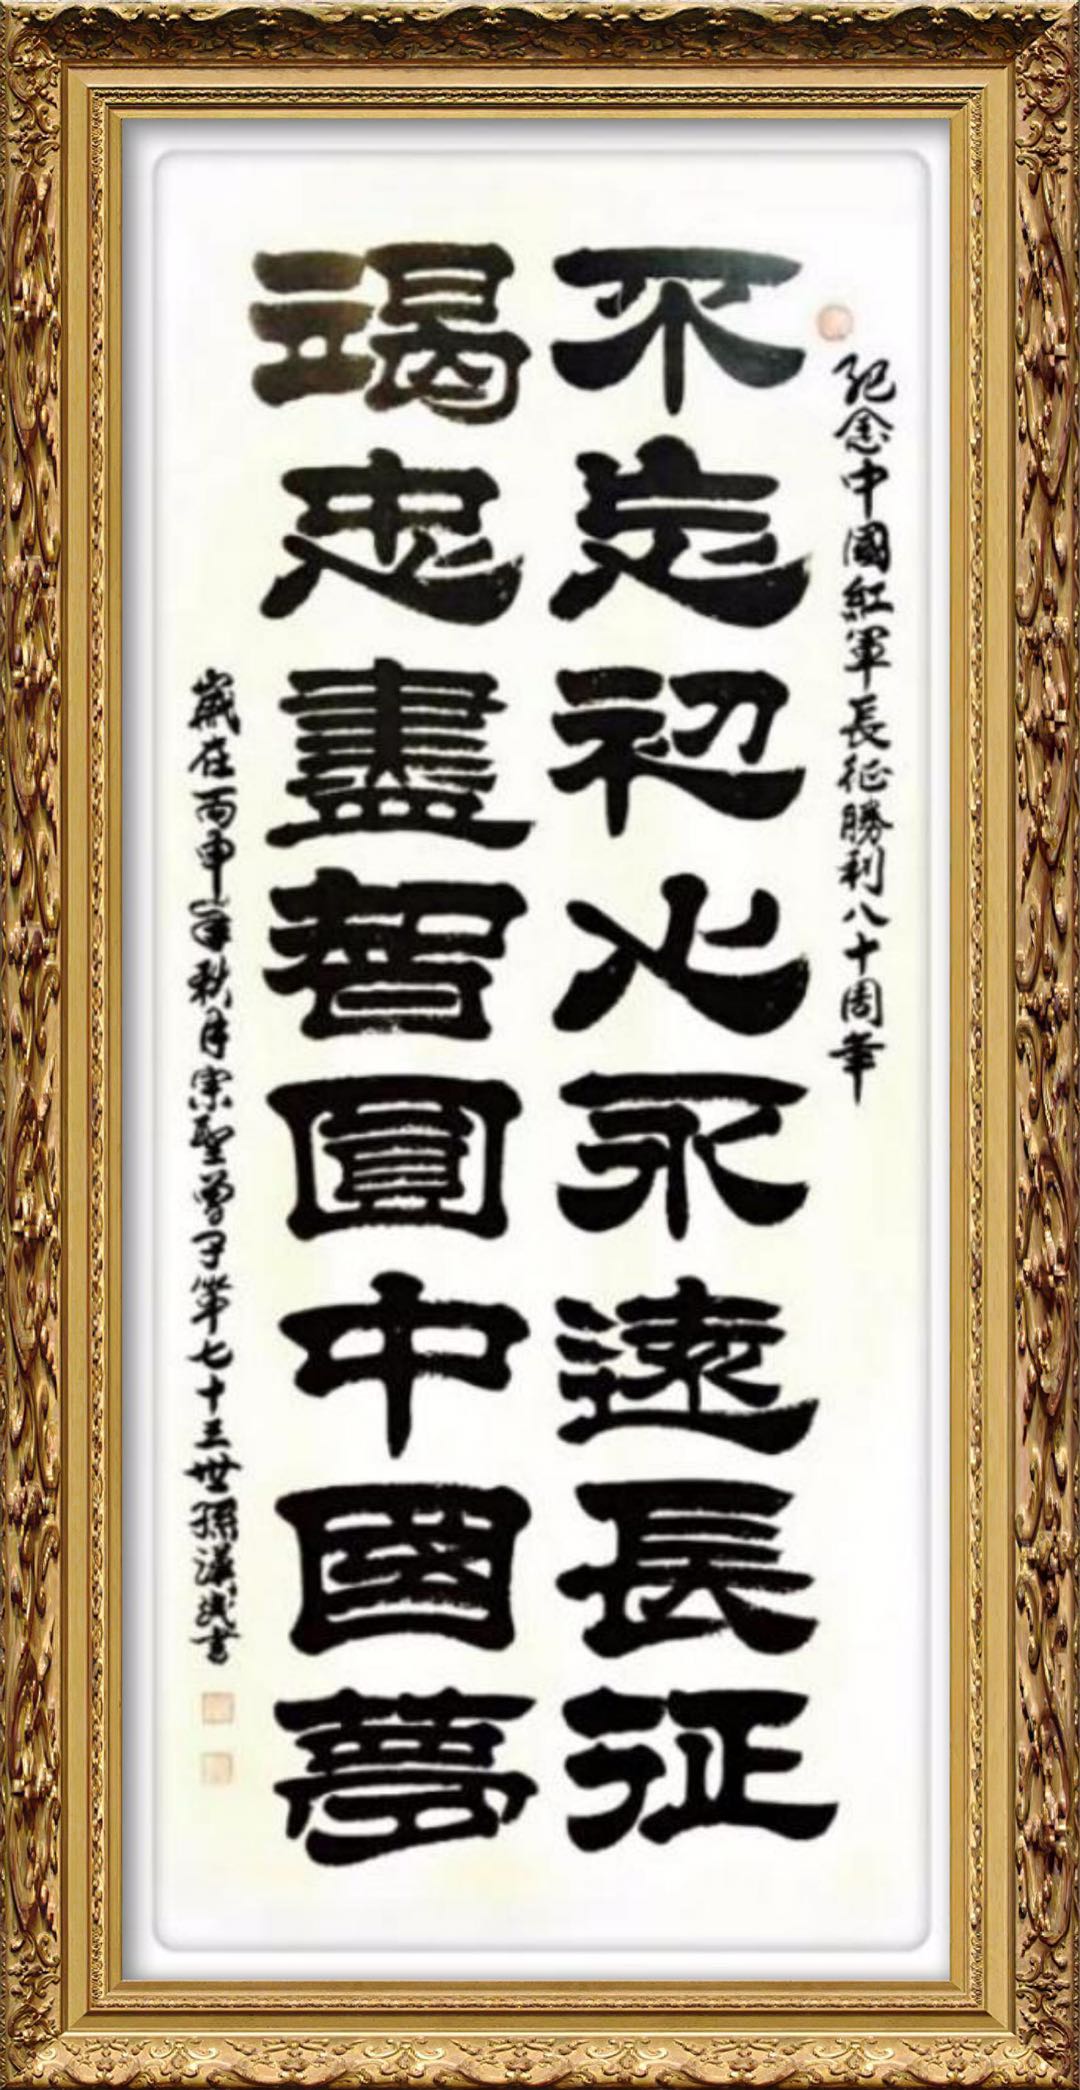 紀念中國紅軍長征勝利八十周年
不忘初心永遠長征
竭忠盡智圓中國夢
歲在丙申年秋月宗聖曾子第七十三世孫漢武書